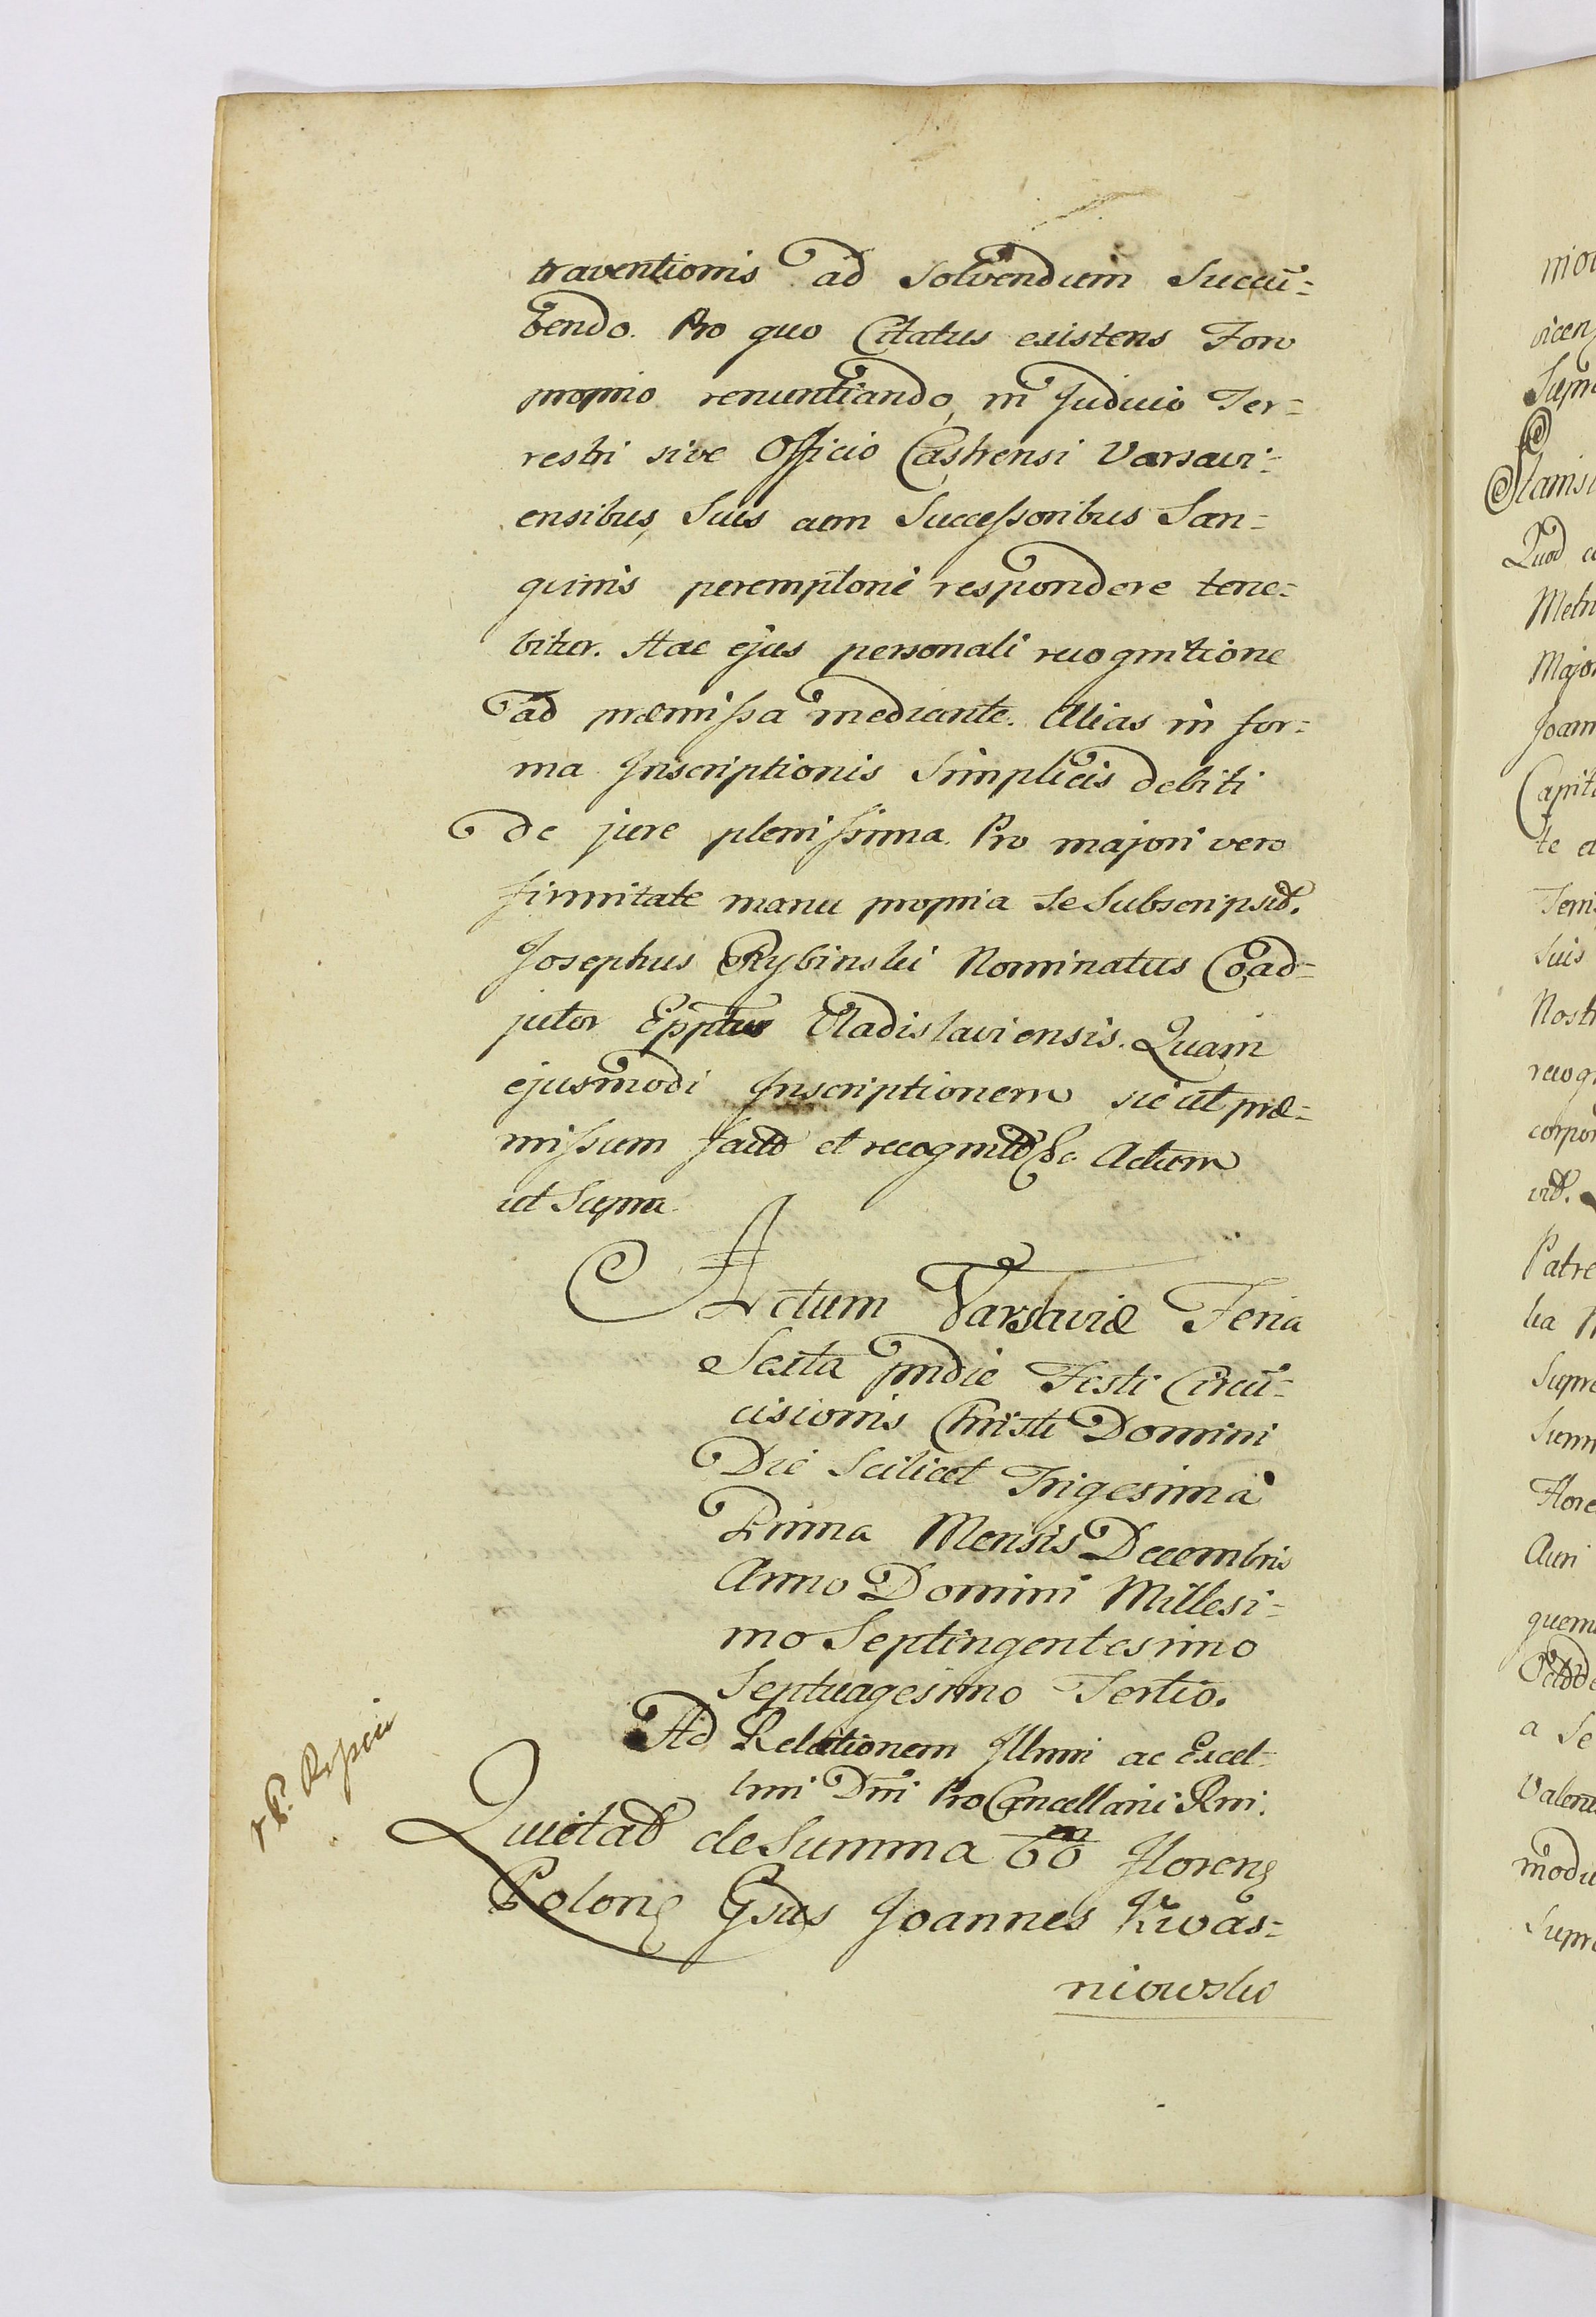 traventionis ad Solvendum Succū=
bendo. Pro quo Citatus existens Foro
proprio renuntiando, in Judicio Ter=
restri sive Officio Castrensi Varsavi=
ensibus, Suis cum Successoribus San=
guinis peremptorie respondere tene=
bitur. Hac ejus personali recognitione
ad præmissa mediante. Alias in for=
ma Inscriptionis Simplicis debiti
de jure plenissima. Pro majori vero
firmitate manu propria se Subscripsit.
Josephus Rybinski Nominatus Coad=
jutor Epptus Vladislaviensis. Quam
ejusmodi Inscriptionem sic ut præ=
missum fact et recognit &c Actum
ut Supra.
Actum Varsaviæ Feria
Sexta pridie Festi Circū=
cisionis Christi Domini
Die Scilicet Trigesima
Prima Mensis Decembris
Anno Domini Millesi=
mo Septingentesimo
Septuagesimo Tertio.
Ad Relationem Illmi ac Excel=
lmi Dni ProCancellarii Rni.
Quietat de Summa 60 m Floren
Polon Gsus Joannes Kwas=
niowski
mo
vicen
Supra
Stanis
Quod
Metr
Major
Joann
Capit
te et
Terris
Suis
Nostr
recog
corpor
vit.
Patre
lia
Supra
Summ
Flore
Auri
quem
a Se
Valen
modi
Supra